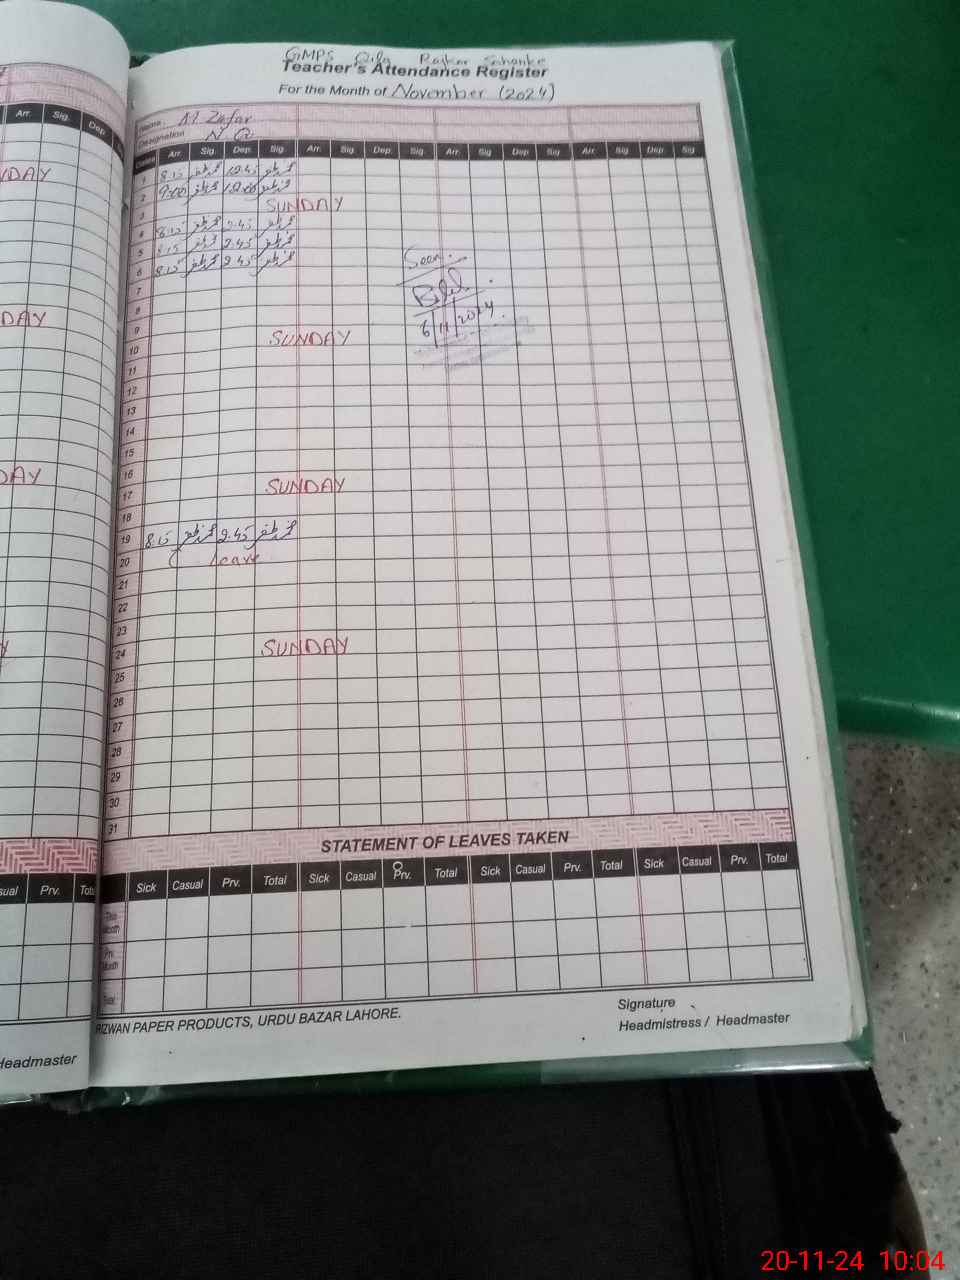 GMPS Qila Rajkor Sahanke
Teacher's Attendance Register
For the Month of November (2024)
Name. M Zafar
Designation N Q
Dates Arr. Sig. Dep. Sig. Arr. Sig. Dep. Sig. Arr. Sig Dep. Sig Arr. Sig Dep. Sig
1 8.15 محمد ظفر 12.45 محمد ظفر
2 9:00 محمد ظفر 12.00 محمد ظفر
3 SUNDAY
4 8:15 محمد ظفر 2.45 محمد ظفر
5 8.15 محمد ظفر 2.45 محمد ظفر
6 8:15 محمد ظفر 2.45 محمد ظفر
Seen.
Bilal
6/11/2024
7
8
9
10 SUNDAY
11
12
13
14
15
16
17 SUNDAY
18
19 8.15 محمد ظفر 2.45 محمد ظفر
20 leave
21
22
23
24 SUNDAY
25
26
27
28
29
30
31
STATEMENT OF LEAVES TAKEN
Sick Casual Prv. Total Sick Casual Prv. Total Sick Casual Prv. Total Sick Casual Prv. Total
This Month
Prv. Month
Total
RIZWAN PAPER PRODUCTS, URDU BAZAR LAHORE.
Signature
Headmistress / Headmaster
Arr. Sig. Dep.
NDAY
DAY
DAY
Y
sual Prv. Total
Headmaster
20-11-24 10:04